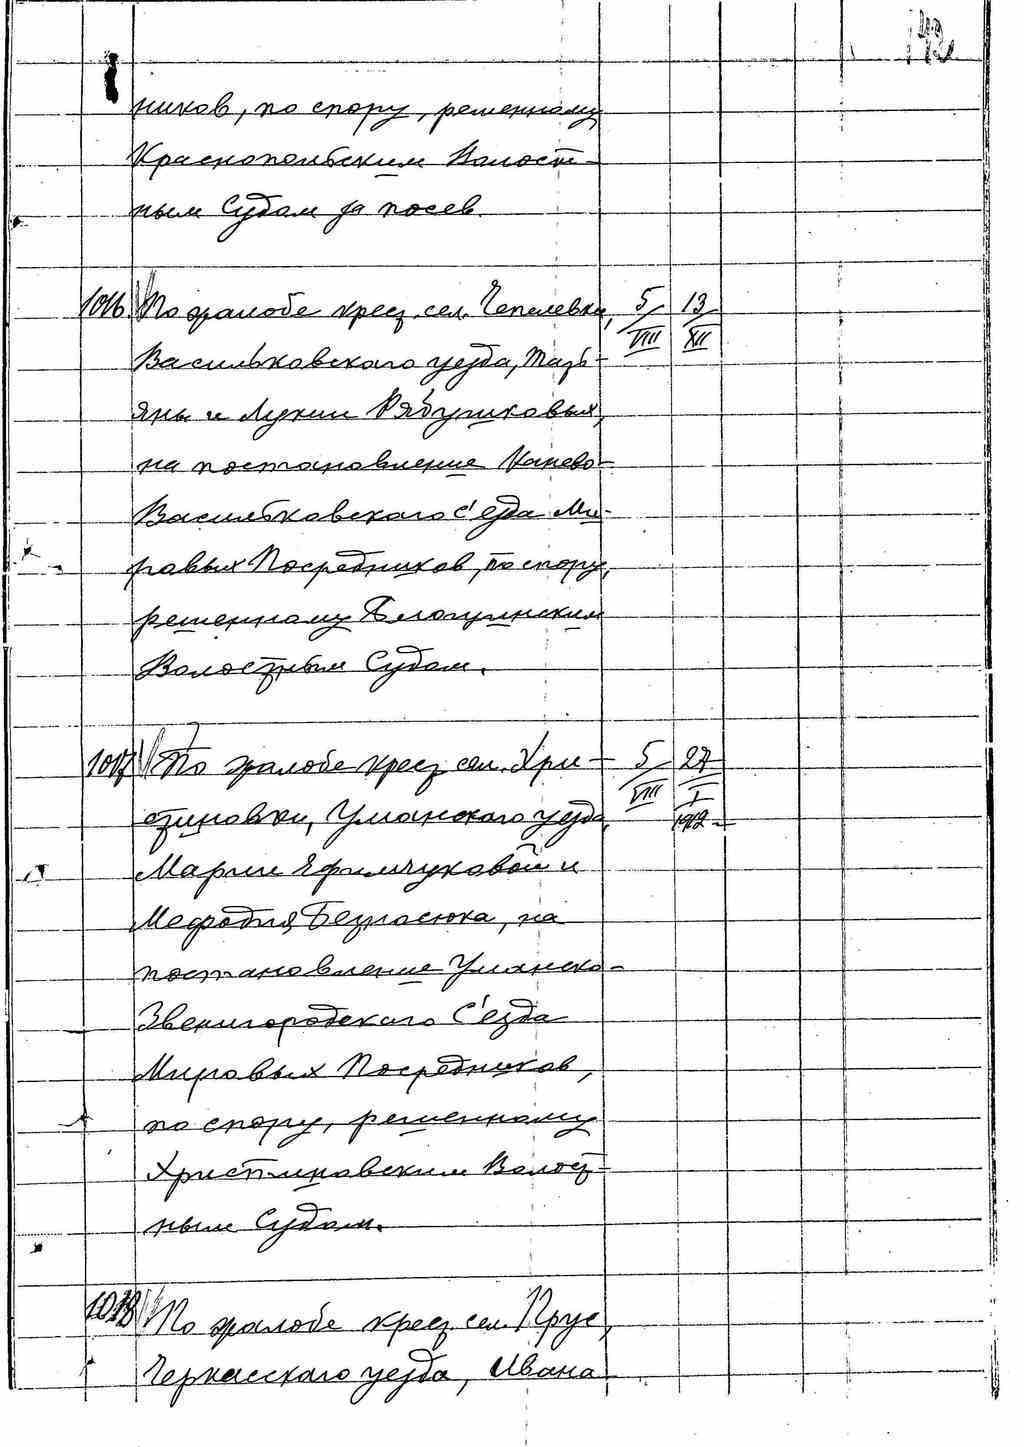 143
ников, по спору, решенному
Краснопольским Волост-
ным Судом за посев.
1016. По жалобе крес. сел. Чепелевки, 5/VIII 13/XII
Васильковского уезда, Марь-
яны и Лукии Рябушковых,
на постановление Канево-
Васильковского С'езда Ми-
ровых Посредников, по спору,
решенному
Волостным Судом.
1017 По жалобе крес. сел. Хри- 5/VIII 27/I
стиновки, Уманского уезда, 1912
Марии Ефимчуковой и
Мефодия Безносюка, на
постановление Уманско-
Звенигородского С'езда
Мировых Посредников,
по спору, решенному
Христиновским Волост-
ным Судом.
1018 По жалобе крес. сел. Прус,
Черкасского уезда, Ивана